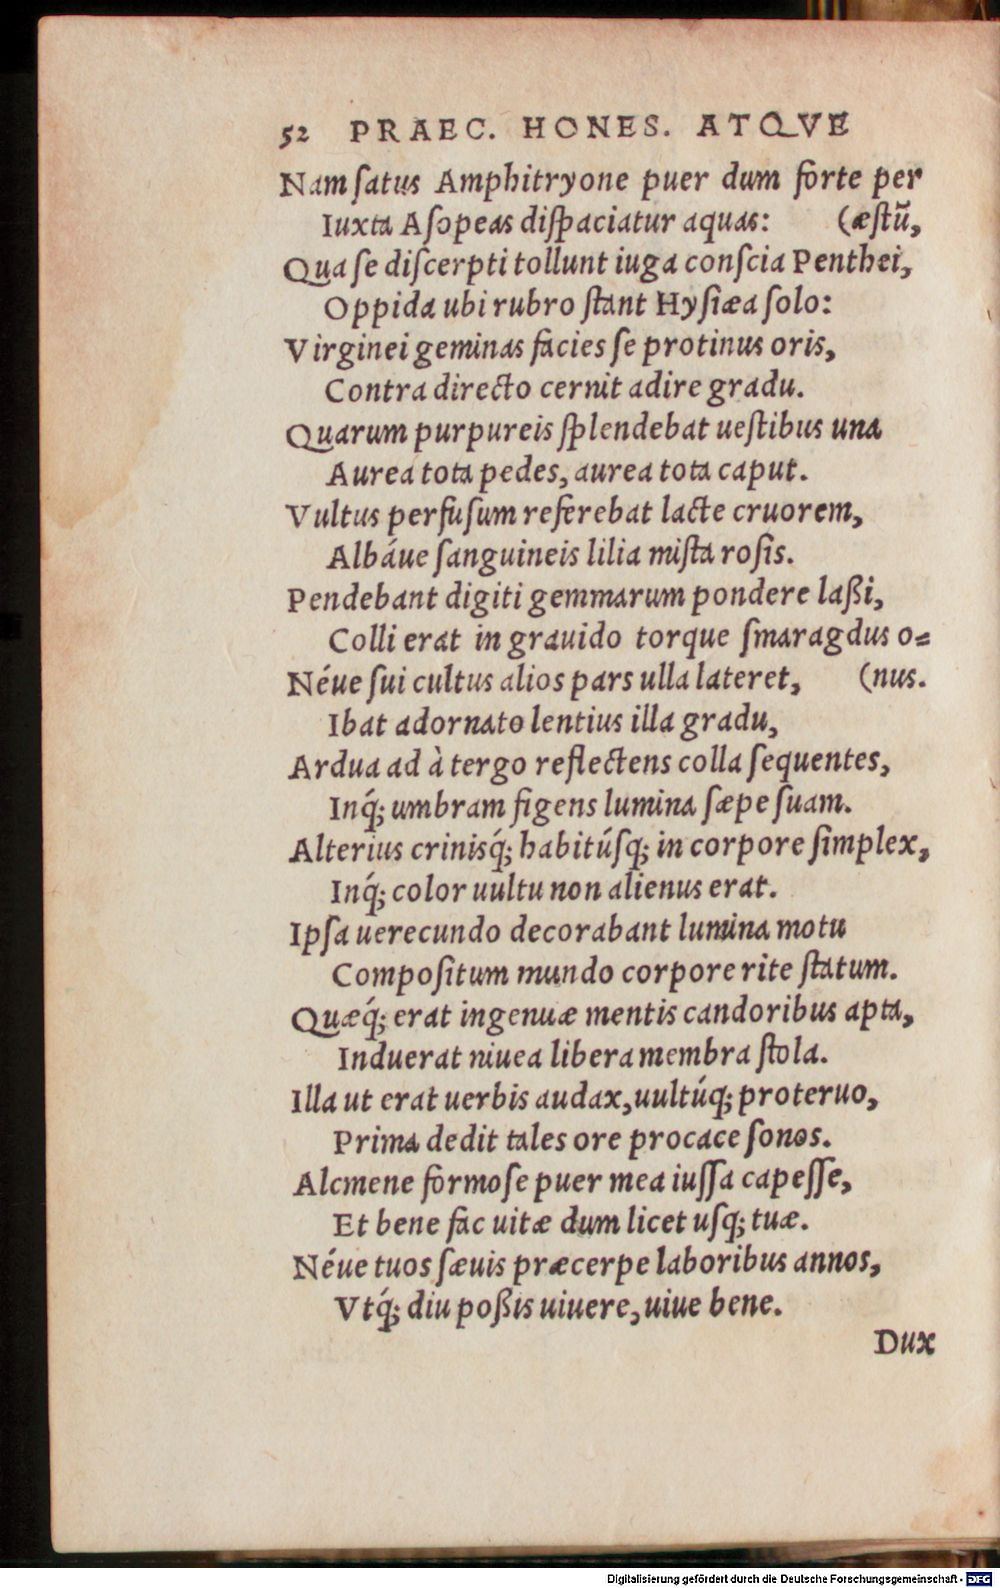 52 PRAEC. HONES. ATQVE
Nam ſatus Amphitryone puer dum forte per
Iuxta Aſopeas diſpaciatur aquas: (æſtũ,
Qua ſe diſcerpti tollunt iuga conſcia Penthei,
Oppida ubi rubro ſtant Hyſiæa ſolo:
Virginei geminas facies ſe protinus oris,
Contra directo cernit adire gradu.
Quarum purpureis ſplendebat ueſtibus una
Aurea tota pedes, aurea tota caput.
Vultus perfuſum referebat lacte cruorem,
Albáue ſanguineis lilia miſta roſis.
Pendebant digiti gemmarum pondere laßi,
Colli erat in grauido torque ſmaragdus o=
Néue ſui cultus alios pars ulla lateret, (nus.
Ibat adornato lentius illa gradu,
Ardua ad à tergo reflectens colla ſequentes,
Inq́; umbram figens lumina ſæpe ſuam.
Alterius crinisq́; habitúſq; in corpore ſimplex,
Inq́; color uultu non alienus erat.
Ipſa uerecundo decorabant lumina motu
Compoſitum mundo corpore rite ſtatum.
Quæq́; erat ingenuæ mentis candoribus apta,
Induerat niuea libera membra ſtola.
Illa ut erat uerbis audax, uultúq; proteruo,
Prima dedit tales ore procace ſonos.
Alcmene formoſe puer mea iuſſa capeſſe,
Et bene fac uitæ dum licet uſq; tuæ.
Néue tuos ſæuis præcerpe laboribus annos,
Vtq́; diu poßis uiuere, uiue bene.
Dux
Digitalisierung gefördert durch die Deutsche Forschungsgemeinschaft - DFG